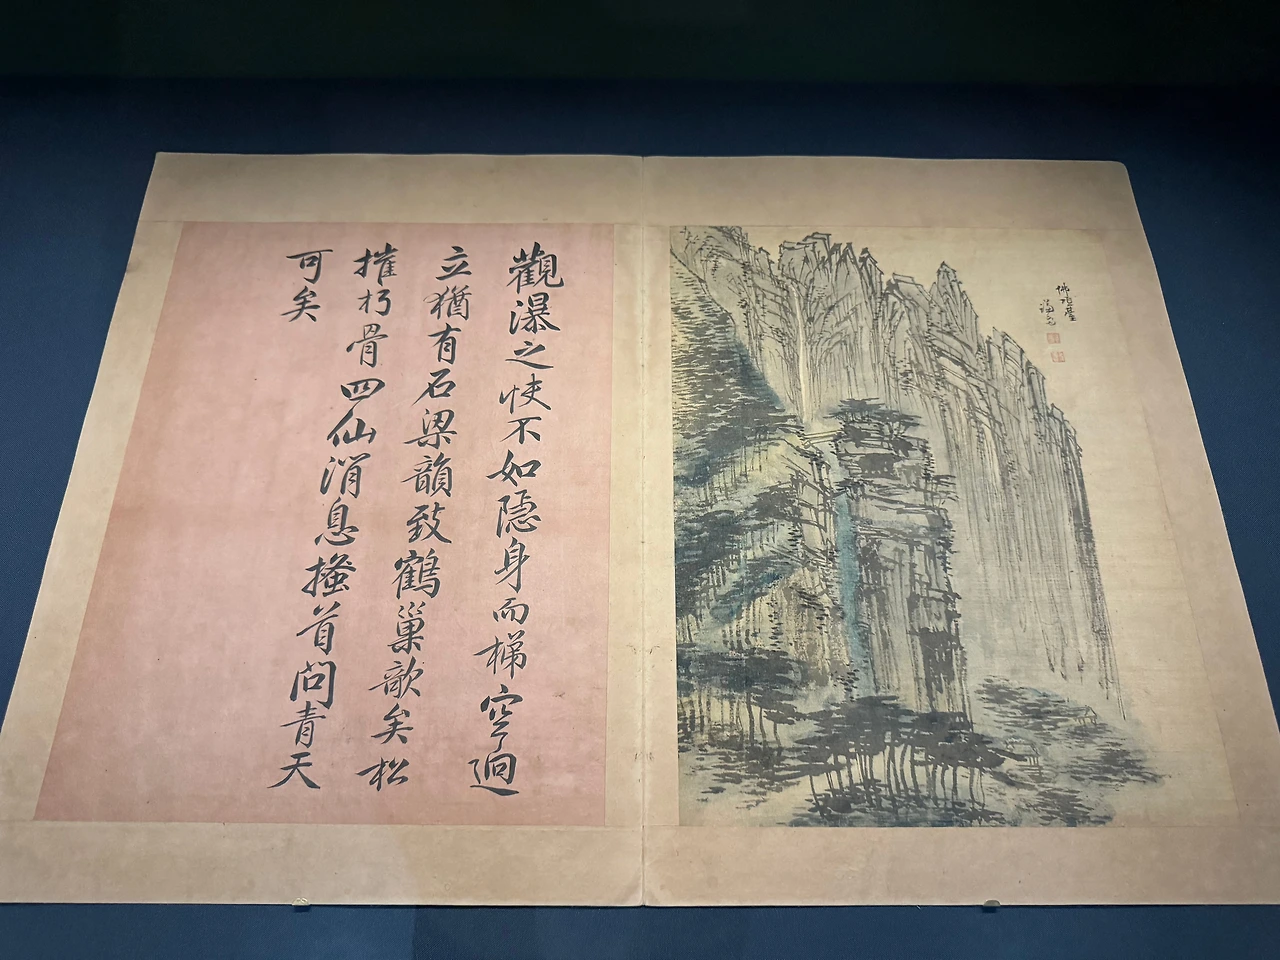 觀瀑之快不如隱身而梯空迥
立猶有石梁韻致鶴巢歆矣松
摧朽骨四仙消息搔首問青天
可矣
佛頂臺
謙玄